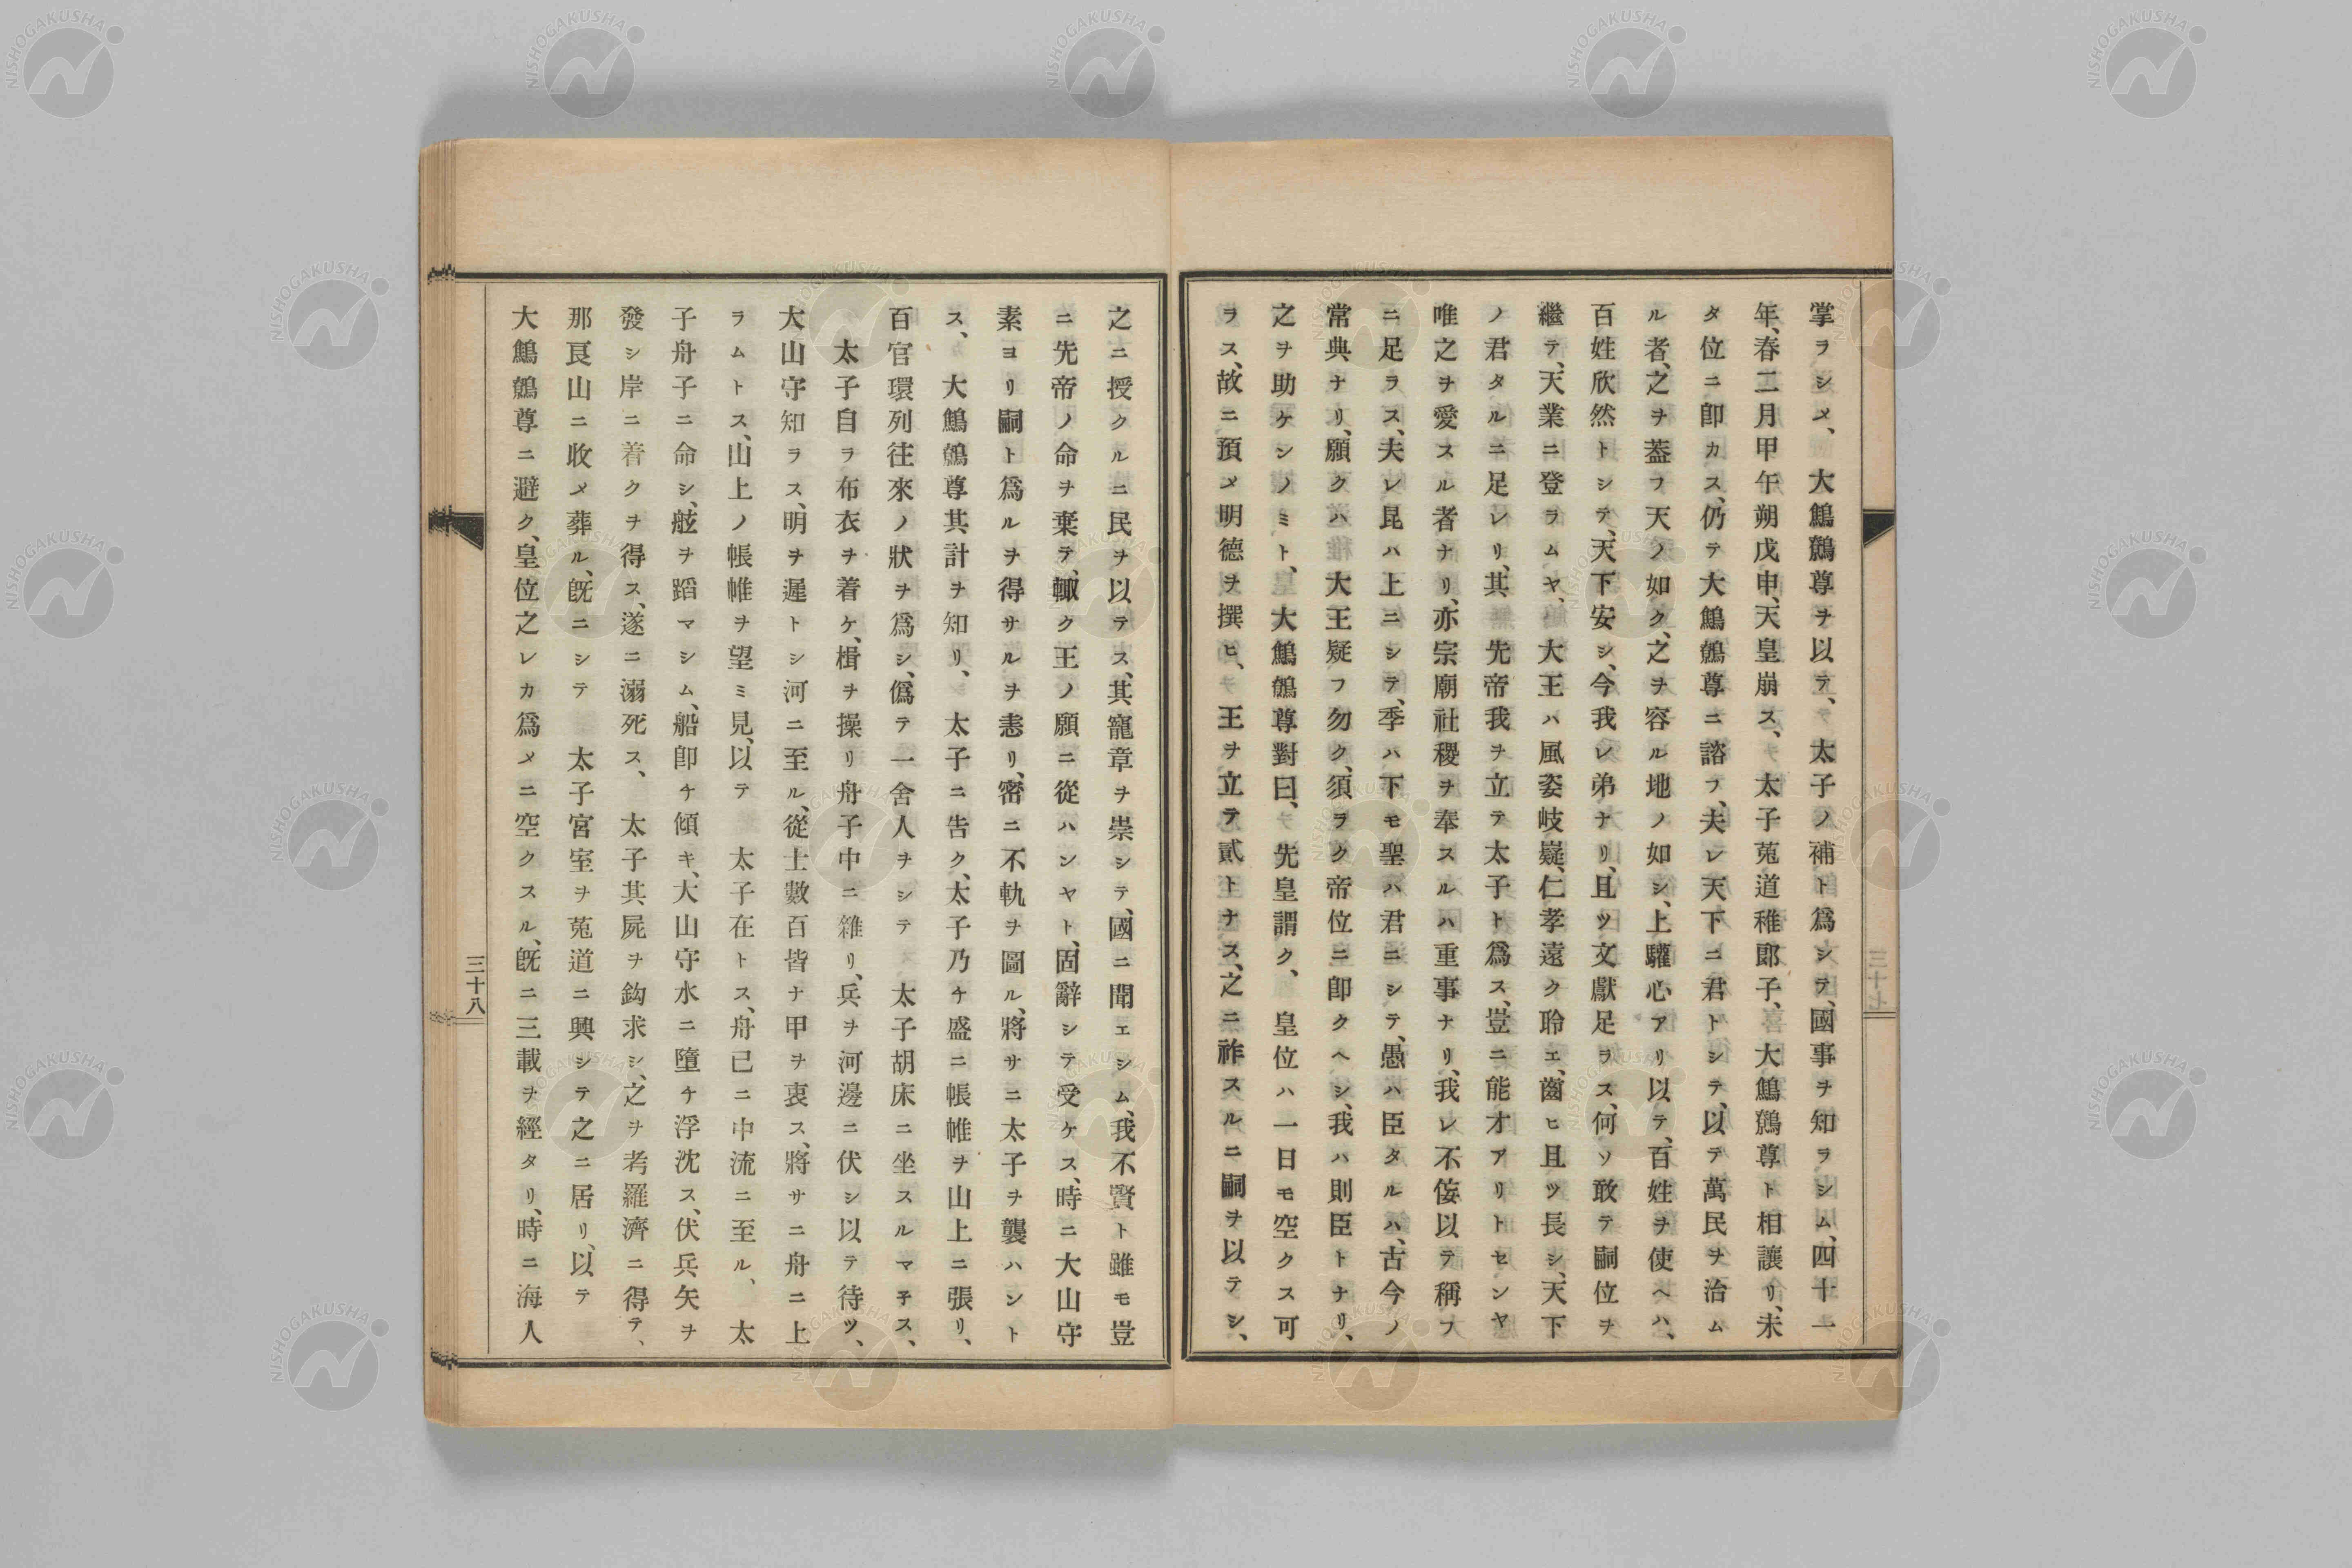 掌ヲシメ、　大鷦鷯尊ヲ以テ、　太子ノ補ト爲シテ、國事ヲ知ラシム、四十一
年、春二月甲午朔戊申、天皇崩ス、　太子菟道稚郎子、大鷦鷯尊ト相讓リ、未
タ位ニ卽カス、仍テ大鷦鷯尊ニ諮フ、夫レ天下ニ君トシテ、以テ萬民ヲ治ム
ル者、之ヲ葢フ天ノ如ク、之ヲ容ル地ノ如シ、上驩心アリ以テ、百姓ヲ使ヘハ、
百姓欣然トシテ、天下安シ、今我レ弟ナリ、且ツ文獻足ラス、何ソ敢テ嗣位ヲ
繼テ、天業ニ登ラムヤ、大王ハ風姿岐嶷、仁孝遠ク聆エ、齒ヒ且ツ長シ、天下
ノ君タルニ足レリ、其先帝我ヲ立テ太子ト爲ス、豈ニ能才アリトセンヤ
唯之ヲ愛スル者ナリ、亦宗廟社稷ヲ奉スルハ重事ナリ、我レ不侫以テ稱フ
ニ足ラス、夫レ昆ハ上ニシテ、季ハ下モ聖ハ君ニシテ、愚ハ臣タルハ、古今ノ
常典ナリ、願クハ　大王疑フ勿ク、須ラク帝位ニ卽クヘシ、我ハ則臣トナリ、
之ヲ助ケシノミト、　大鷦鷯尊對曰、　先皇謂ク、　皇位ハ一日モ空クス可
ラス、故ニ預メ明德ヲ撰ヒ、　王ヲ立テ貳トナス、之ニ祚スルニ嗣ヲ以テシ、
之ニ授クルニ民ヲ以テス、其寵章ヲ崇シテ、國ニ聞エシム、我不賢ト雖モ豈
ニ先帝ノ命ヲ棄テ、輙ク王ノ願ニ從ハンヤト、固辭シテ受ケス、時ニ大山守
素ヨリ嗣ト爲ルヲ得サルヲ恚リ、密ニ不軌ヲ圖ル、將サニ太子ヲ襲ハント
ス、　大鷦鷯尊其計ヲ知リ、　太子ニ告ク、太子乃チ盛ニ帳帷ヲ山上ニ張リ、
百官環列往來ノ狀ヲ爲シ、僞テ一舍人ヲシテ　太子胡床ニ坐スルマネス、
　太子自ラ布衣ヲ着ケ、楫ヲ操リ舟子中ニ雜リ、兵ヲ河邊ニ伏シ以テ待ツ、
大山守知ラス、明ヲ遲トシ河ニ至ル、從士數百皆ナ甲ヲ衷ス、將サニ舟ニ上
ラムトス、山上ノ帳帷ヲ望ミ見、以テ　太子在トス、舟已ニ中流ニ至ル、　太
子舟子ニ命シ、舷ヲ蹈マシム、船卽チ傾キ、大山守水ニ墮チ浮沈ス、伏兵矢ヲ
發シ岸ニ着クヲ得ス、遂ニ溺死ス、　太子其屍ヲ鈎求シ、之ヲ考羅濟ニ得テ、
那良山ニ收メ葬ル、旣ニシテ　太子宮室ヲ菟道ニ興シテ之ニ居リ、以テ
大鷦鷯尊ニ避ク、皇位之レカ爲メニ空クスル、旣ニ三載ヲ經タリ、時ニ海人
三十八